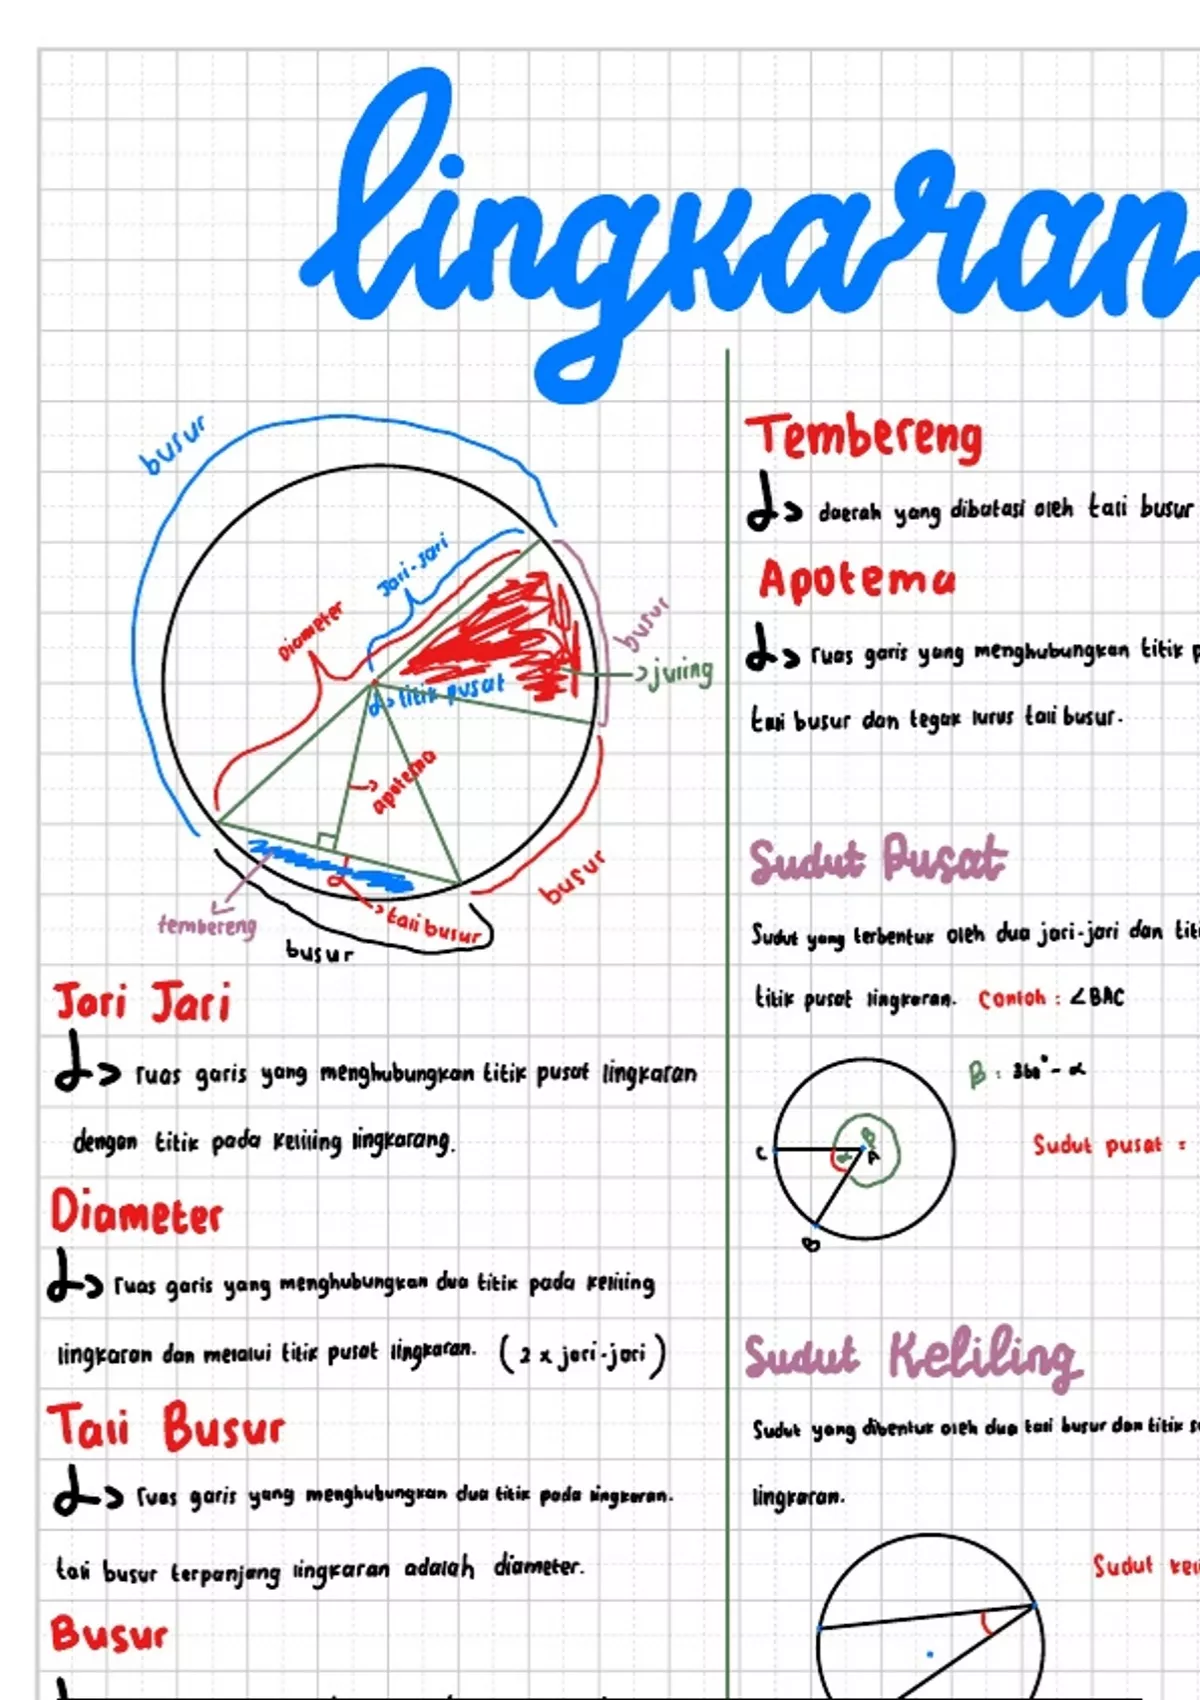 lingkaran
busur
Jari-jari
Diameter
busur
juring
titik pusat
apotema
busur
tembereng
tali busur
busur
Jari Jari
ruas garis yang menghubungkan titik pusat lingkaran
dengan titik pada keliling lingkarang.
Diameter
ruas garis yang menghubungkan dua titik pada keliling
lingkaran dan melalui titik pusat lingkaran. (2 x jari-jari)
Tali Busur
ruas garis yang menghubungkan dua titik pada lingkaran.
tali busur terpanjang lingkaran adalah diameter.
Busur
Tembereng
daerah yang dibatasi oleh tali busur
Apotema
ruas garis yang menghubungkan titik p
tali busur dan tegak lurus tali busur.
Sudut Pusat
Sudut yang terbentuk oleh dua jari-jari dan titi
titik pusat lingkaran. Contoh : ∠BAC
β : 360° - α
C α β A
B
Sudut pusat =
Sudut Keliling
Sudut yang dibentuk oleh dua tali busur dan titik s
lingkaran.
Sudut keli